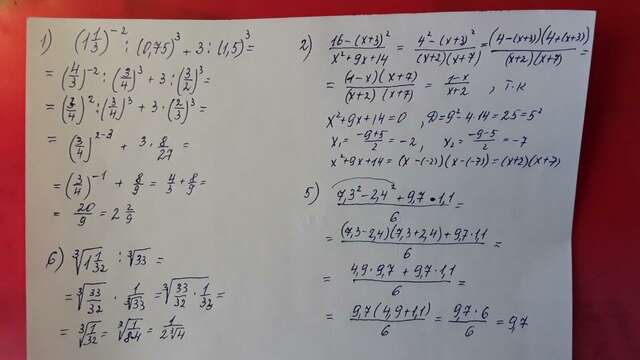 1) (1 1/3)^-2 : (0,75)^3 + 3 : (1,5)^3 =
= (4/3)^-2 : (3/4)^3 + 3 : (3/2)^3 =
= (3/4)^2 : (3/4)^3 + 3 · (2/3)^3 =
= (3/4)^2-3 + 3 · 8/27 =
= (3/4)^-1 + 8/9 = 4/3 + 8/9 =
= 20/9 = 2 2/9
6) ∛(1 1/32) : ∛33 =
= ∛(33/32) · 1/∛33 = ∛(33/32 · 1/33) =
= ∛(1/32) = ∛(1/8·4) = 1/(2∛4)
2) (16-(x+3)^2)/(x^2+9x+14) = (4^2-(x+3)^2)/((x+2)(x+7)) = ((4-(x+3))(4+(x+3)))/((x+2)(x+7)) =
= ((1-x)(x+7))/((x+2)(x+7)) = (1-x)/(x+2) , т.к
x^2+9x+14=0 , D=9^2-4·14=25=5^2
x1 = (-9+5)/2 = -2, x2 = (-9-5)/2 = -7
x^2+9x+14 = (x-(-2))(x-(-7)) = (x+2)(x+7)
5) (7,3^2-2,4^2+9,7·1,1)/6 =
= ((7,3-2,4)(7,3+2,4)+9,7·1,1)/6 =
= (4,9·9,7+9,7·1,1)/6 =
= (9,7(4,9+1,1))/6 = (9,7·6)/6 = 9,7